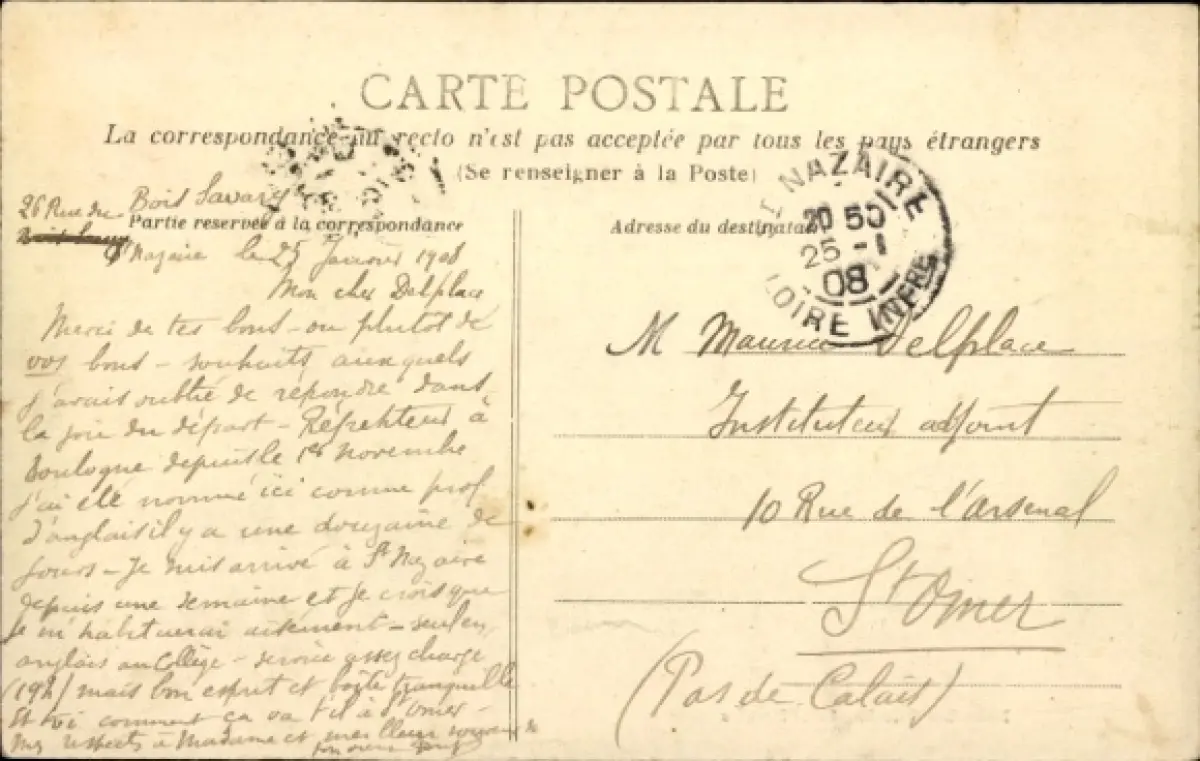 CARTE POSTALE
La correspondance au recto n'est pas acceptée par tous les pays étrangers
(Se renseigner à la Poste)
26 Rue du Bois Savary
Partie reservée à la correspondance
St Nazaire le 25 Janvier 1908
Mon cher Delplace
Merci de tes bons - ou plutôt de
vos bons - souhaits auxquels
j'avais oublié de répondre dans
la joie du départ - Répétiteur à
Boulogne depuis le 1er novembre
j'ai été nommé ici comme prof
d'anglais il y a une douzaine de
jours - Je suis arrivé à St Nazaire
depuis une semaine et je crois que
je m'habituerai aisément - seul en
anglais au Collège - service assez chargé
(19h) mais bon esprit et boîte tranquille
Et toi comment ça va t'il à St Omer -
Mes respects à Madame et meilleur souvenir de
ton vieux
Adresse du destinataire
NAZAIRE
20 50
25 -1
08
LOIRE INFRE
M Maurice Delplace
Instituteur adjoint
10 Rue de l'Arsenal
St Omer
(Pas de Calais)